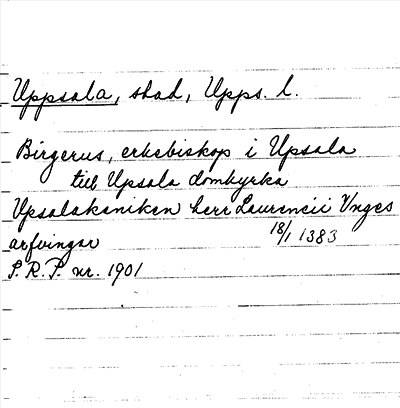 Uppsala, stad, Upps. l.
Birgerus, erkebiskop i Upsala
till Upsala domkyrka
Upsalakaniken herr Laurencii Unges
arfvingar 18/1 1383
S. R. P. nr. 1901